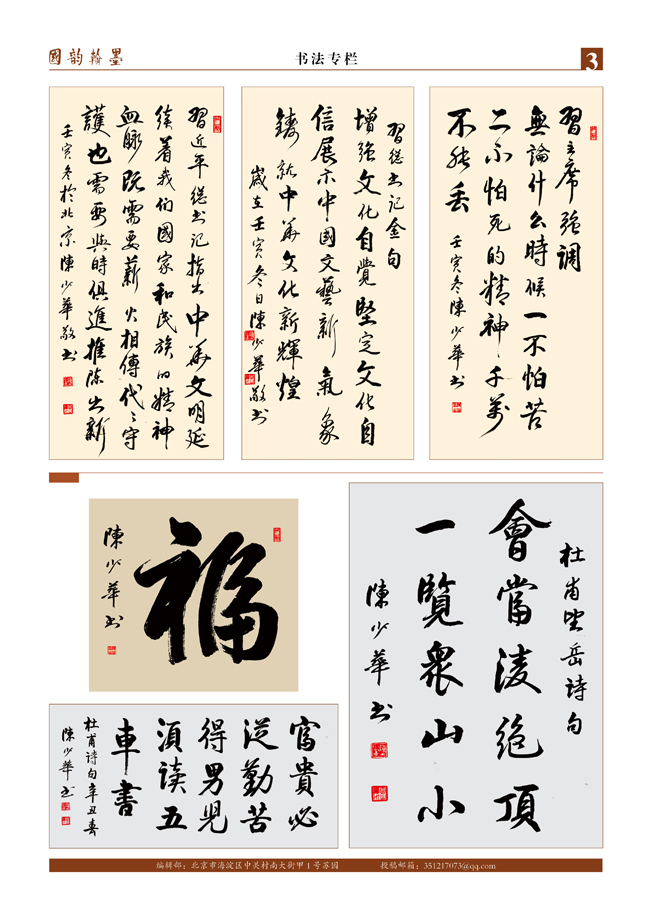 國韵翰墨
书法专栏
3
習主席强调
無論什么時候一不怕苦
二不怕死的精神千萬
不能丢
壬寅冬陳少華书
習總书记金句
增强文化自覺堅定文化自
信展示中國文藝新氣象
鑄就中華文化新輝煌
歲在壬寅冬日陳少華敬书
習近年總书记指出中華文明延
續着我们國家和民族的精神
血脈既需要薪火相傳代々守
護也需要與時俱進推陈出新
壬寅冬於北京陳少華敬书
福
陳少華书
杜甫望岳诗句
會當凌绝頂
一覽衆山小
陳少華书
富貴必
從勤苦
得男兒
須读五
車書
杜甫诗句辛丑春
陳少華书
编辑部：北京市海淀区中关村南大街甲1号苏园
投稿邮箱：351217073@qq.com